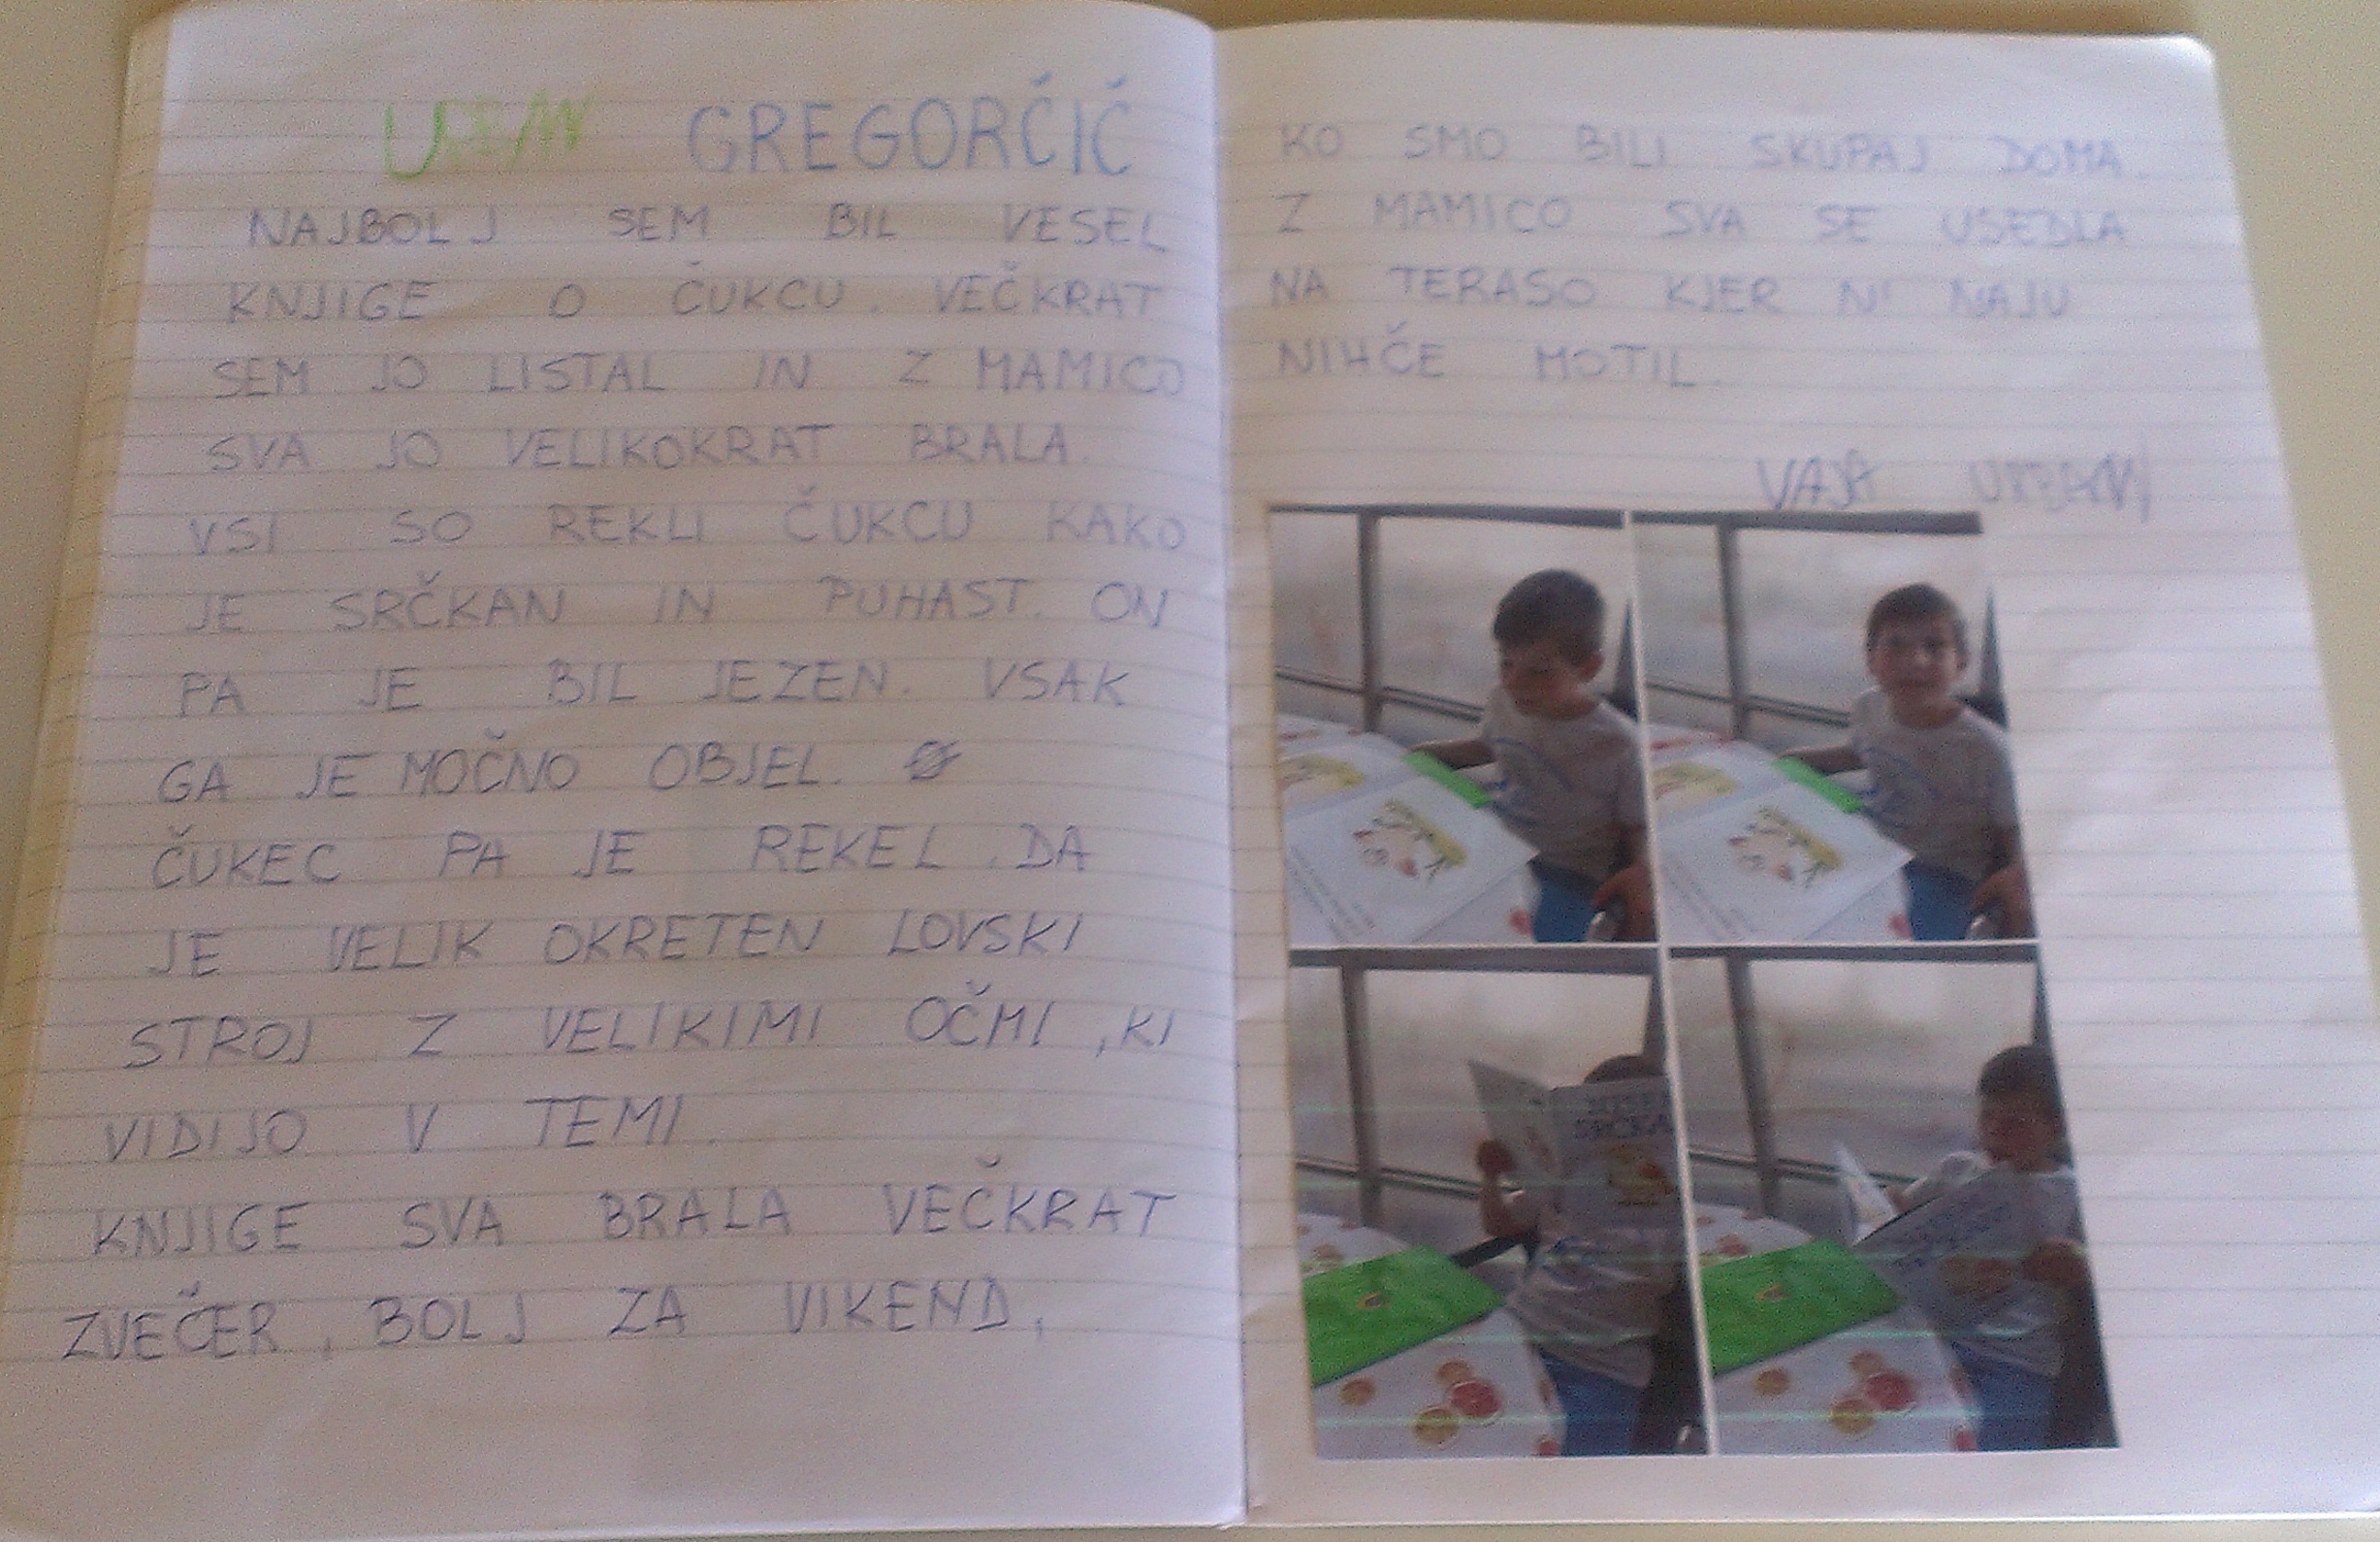 URBAN GREGORČIČ
NAJBOLJ SEM BIL VESEL
KNJIGE O ČUKCU. VEČKRAT
SEM JO LISTAL IN Z MAMICO
SVA JO VELIKOKRAT BRALA.
VSI SO REKLI ČUKCU KAKO
JE SRČKAN IN PUHAST. ON
PA JE BIL JEZEN. VSAK
GA JE MOČNO OBJEL.
ČUKEC PA JE REKEL, DA
JE VELIK OKRETEN LOVSKI
STROJ Z VELIKIMI OČMI, KI
VIDIJO V TEMI.
KNJIGE SVA BRALA VEČKRAT
ZVEČER, BOLJ ZA VIKEND,
KO SMO BILI SKUPAJ DOMA.
Z MAMICO SVA SE USEDLA
NA TERASO KJER NI NAJU
NIHČE MOTIL.
URBAN